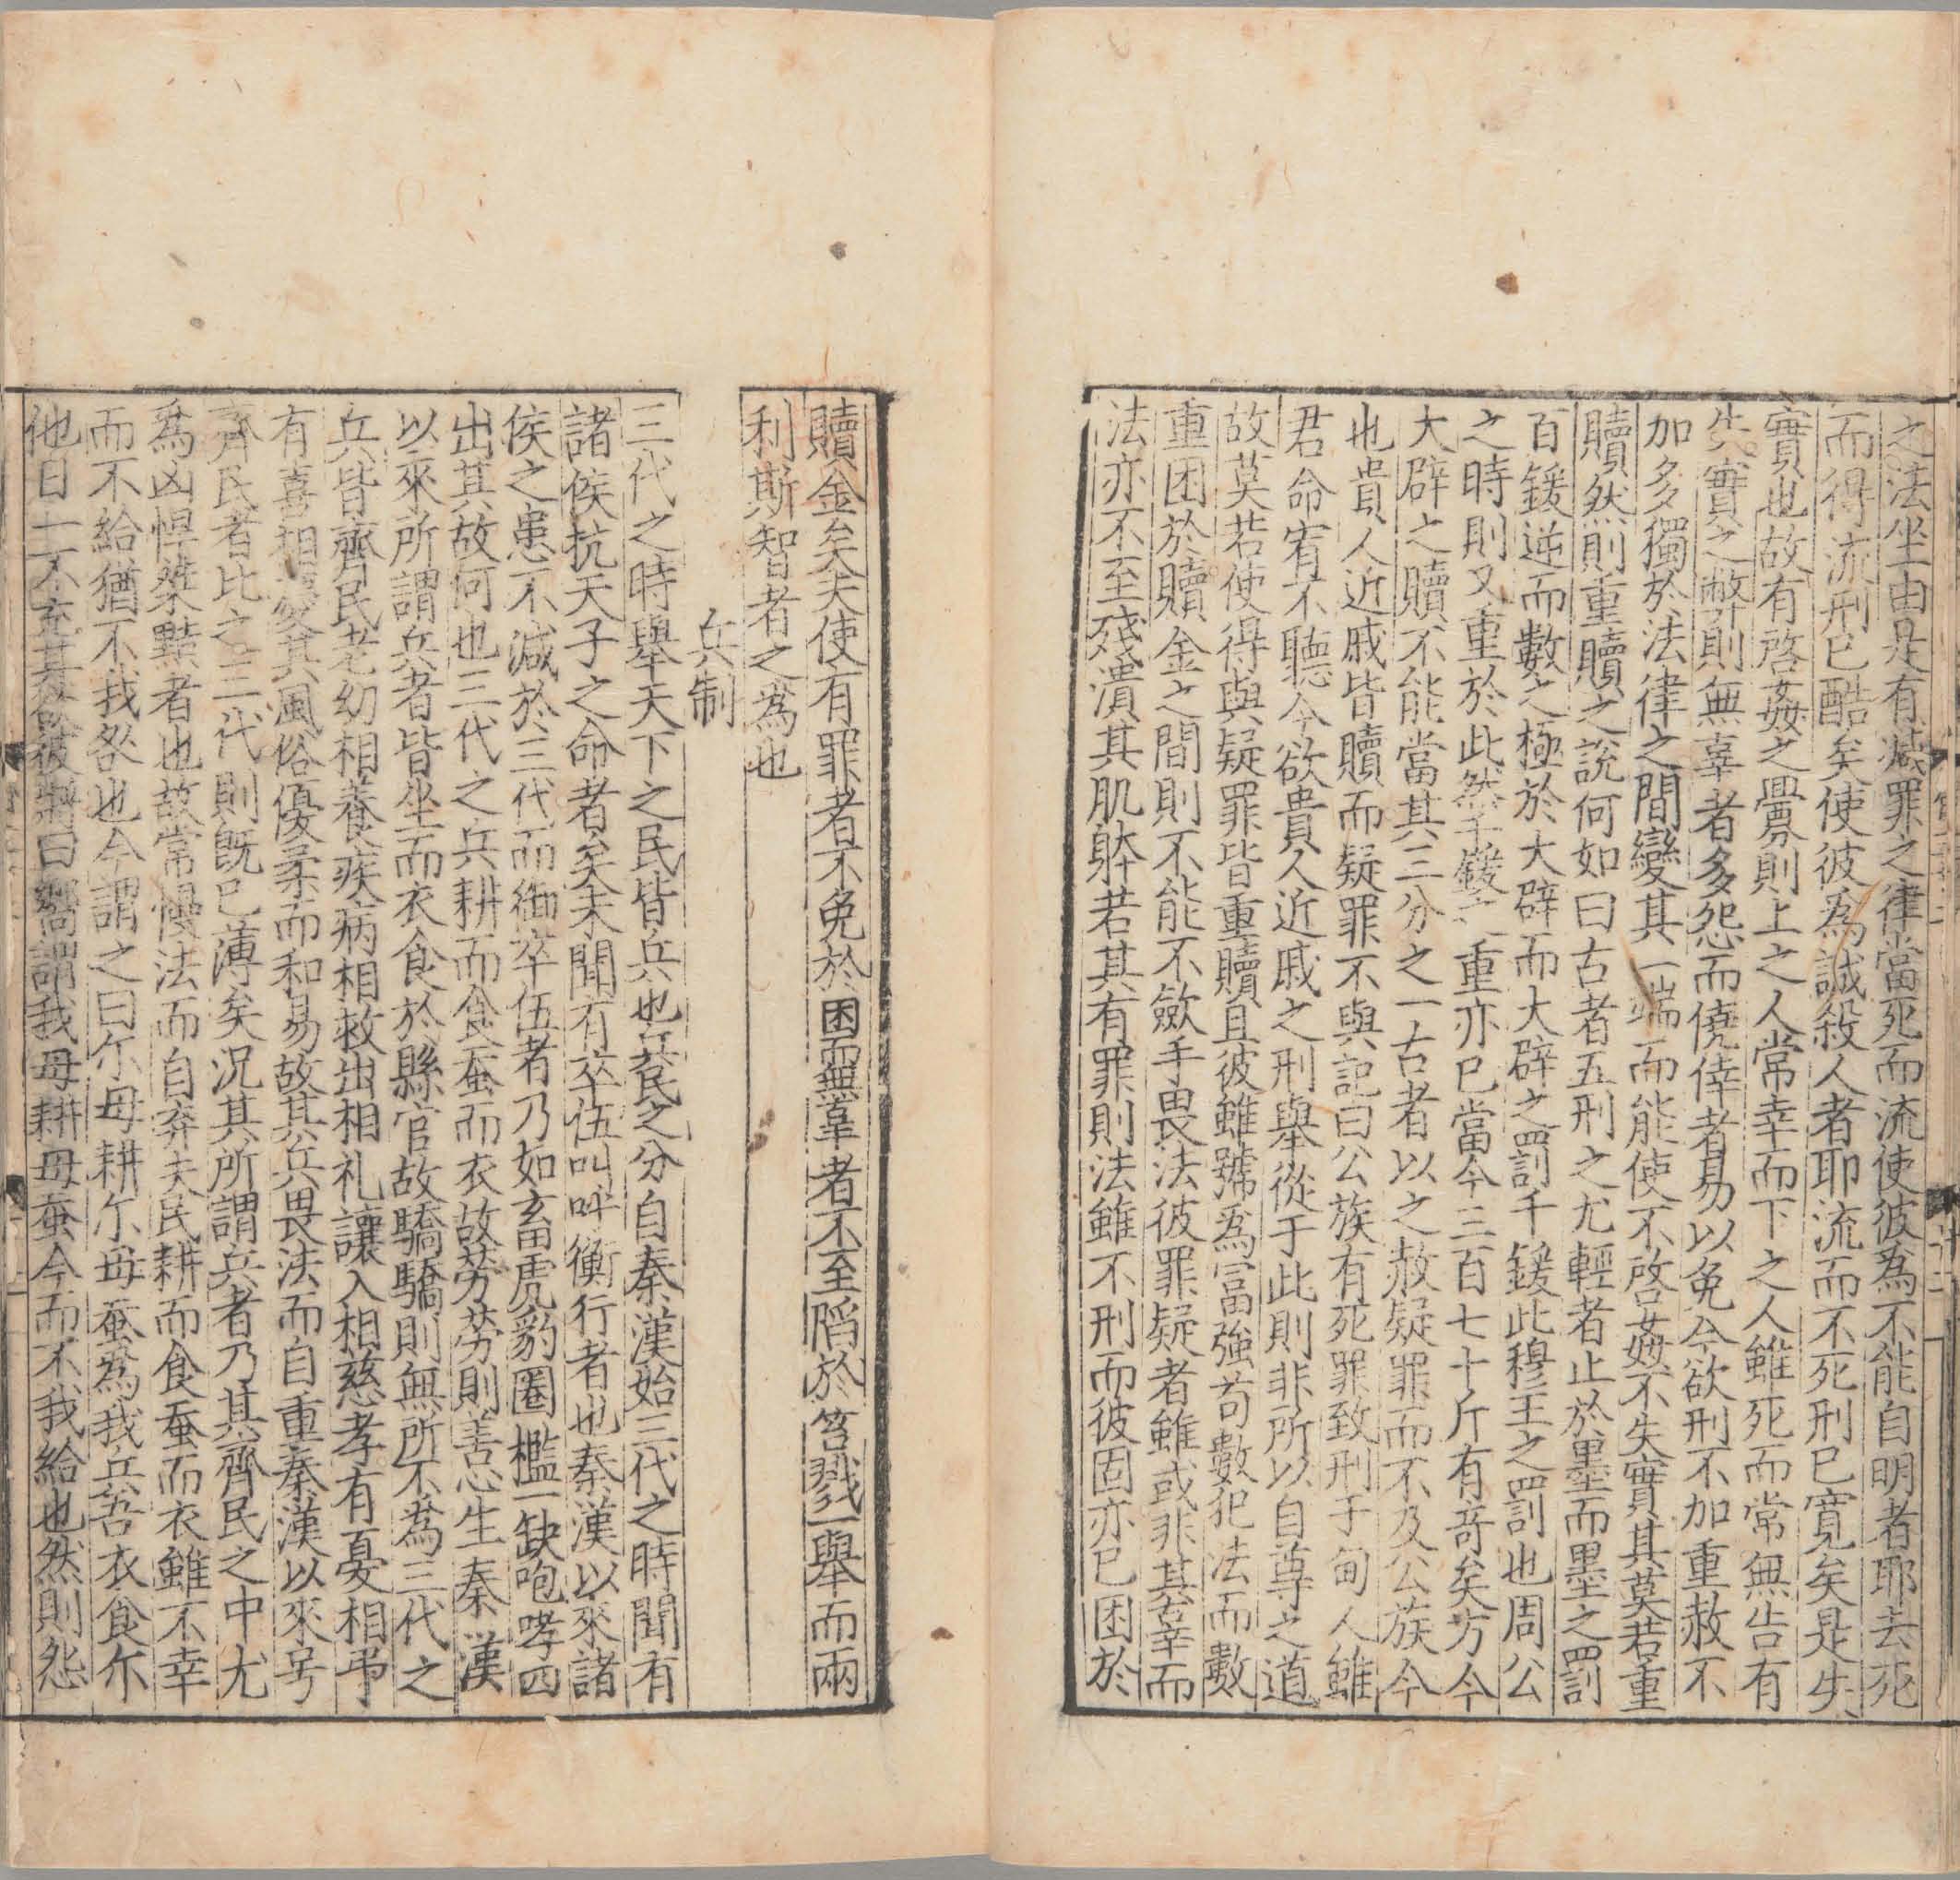 之法坐由是有减罪之律當死而流使彼爲不能自明者耶去死
而得流刑已酷矣使彼爲誠殺人者耶流而不死刑已寛矣是失
實也故有啓姦之釁則上之人常幸而下之人雖死而常無告有
失實之弊則無辜者多怨而僥倖者易以免今欲刑不加重赦不
加多獨於法律之間變其一端而能使不啓姦不失實其莫若重
贖然則重贖之說何如曰古者五刑之尤輕者止於墨而墨之罰
百鍰逆而數之極於大辟而大辟之罰千鍰此穆王之罰也周公
之時則又重於此然千鍰之重亦已當今三百七十斤有竒矣方今
大辟之贖不能當其三分之一古者以之赦疑罪而不及公族今
也貴人近戚皆贖而疑罪不與記曰公族有死罪致刑于甸人雖
君命宥不聽今欲貴人近戚之刑舉從于此則非所以自尊之道
故莫若使得與疑罪皆重贖且彼雖號爲富強苟數犯法而數
重困於贖金之間則不能不歛手畏法彼罪疑者雖或非其辜而
法亦不至殘潰其肌躰若其有罪則法雖不刑而彼固亦已困於
贖金矣夫使有罪者不免於困而無辜者不至陷於笞戮一舉而兩
利斯智者之爲也
兵制
三代之時舉天下之民皆兵也兵民之分自秦漢始三代之時聞有
諸侯抗天子之命者矣未聞有卒伍叫呼衡行者也秦漢以來諸
侯之患不減於三代而御卒伍者乃如畜虎豹圈檻一缺咆哮四
出其故何也三代之兵耕而食蚕而衣故勞勞則善心生秦漢
以來所謂兵者皆坐而衣食於縣官故驕驕則無所不爲三代之
兵皆齊民老幼相養疾病相救出相礼讓入相慈孝有憂相弔
有喜相愛其風俗優柔而和易故其兵畏法而自重秦漢以來号
齊民者比之三代則既已薄矣况其所謂兵者乃其齊民之中尤
爲凶悍桀黠者也故常慢法而自弃夫民耕而食蚕而衣雖不幸
而不給猶不我咎也今謂之曰尔毋耕尔毋蚕爲我兵吾衣食尔
他日一不充其欲彼將曰嚮謂我毋耕毋蚕今而不我給也然則怨